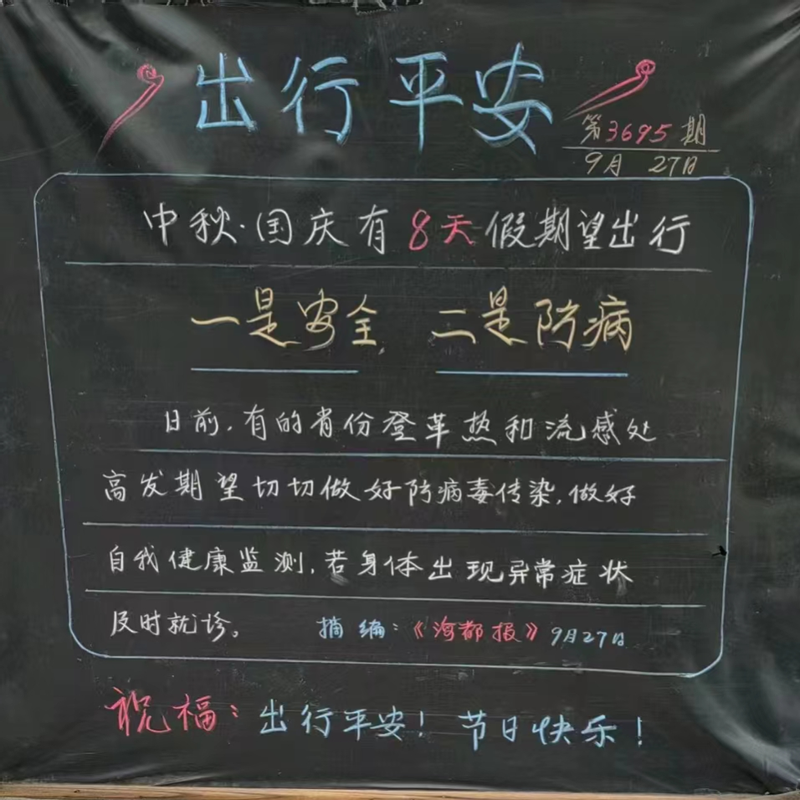 出行平安
第3695期
9月 27日
中秋·国庆有8天假期望出行
一是安全 二是防病
日前,有的省份登革热和流感处
高发期望切切做好防病毒传染,做好
自我健康监测,若身体出现异常症状
及时就诊。 摘编:《海都报》9月27日
祝福:出行平安!节日快乐!